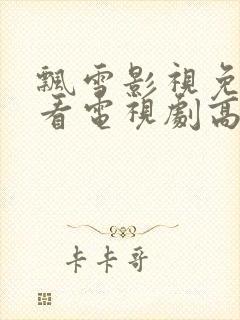 飄雪影視免
看電視劇高
卡卡哥